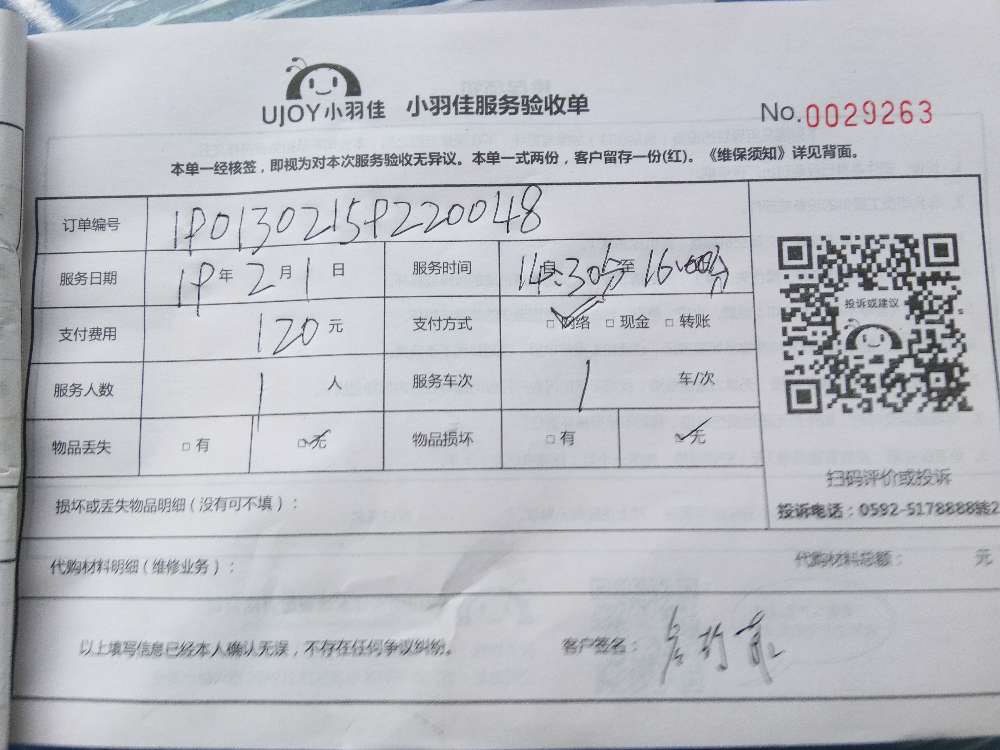 UJOY小羽佳 小羽佳服务验收单 No.0029263
本单一经核签，即视为对本次服务验收无异议。本单一式两份，客户留存一份(红)。《维保须知》详见背面。
订单编号 19013021592220048
服务日期 19年2月1日 服务时间 14:30分至16:00分
支付费用 120元 支付方式 □网络 □现金 □转账
投诉或建议
服务人数 1人 服务车次 1车/次
物品丢失 □有 □无 物品损坏 □有 □无
扫码评价或投诉
损坏或丢失物品明细（没有可不填）：
投诉电话：0592-5178888转2
代购材料明细（维修业务）： 代购材料总额： 元
以上填写信息已经本人确认无误，不存在任何争议纠纷。 客户签名：